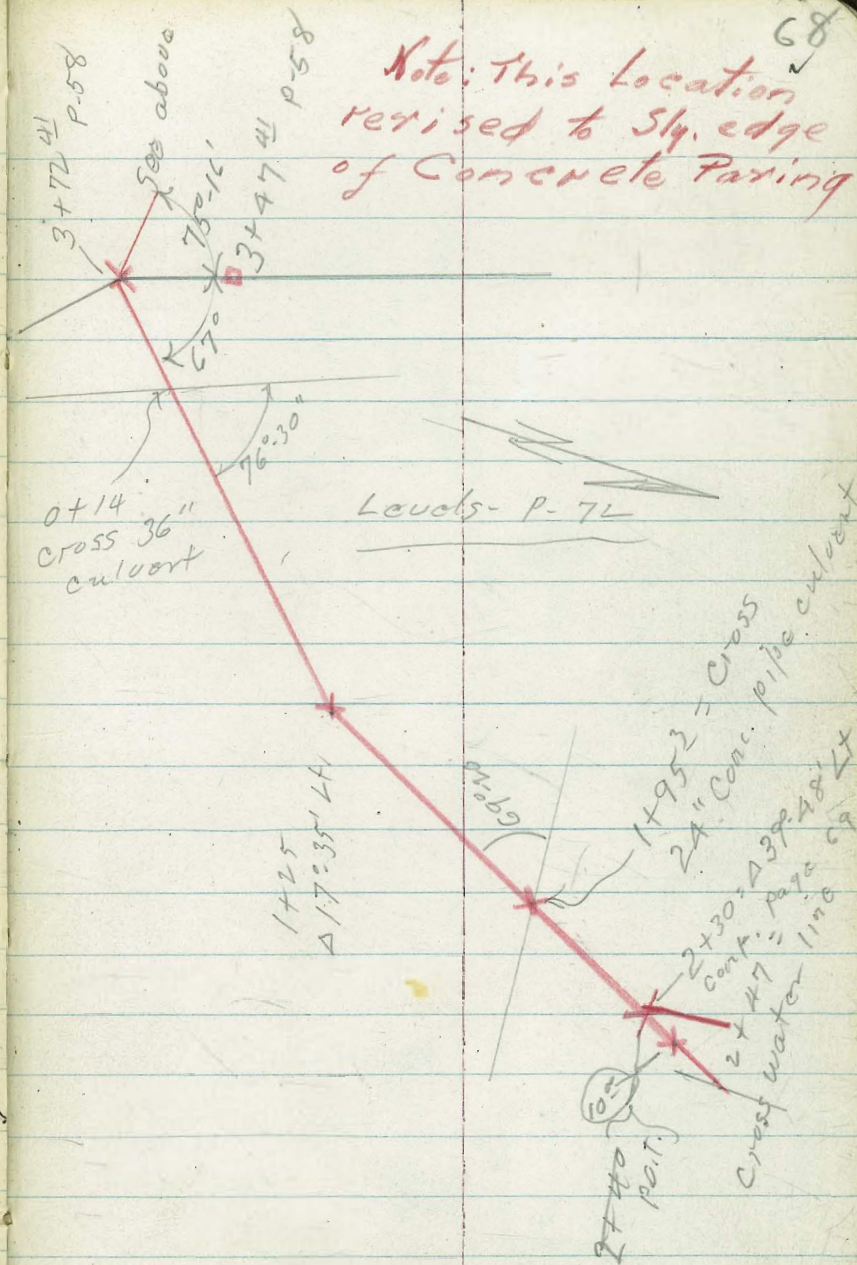 68
Note: This Location
revised to Sly. edge
of Concrete Paving
3+72 41 P-58
See above
75°-16'
3+47 41 P-58
67°
76°-30"
0+14
cross 36"
culvert
Levels- P-72
1+25
Δ 17°35' Lt.
1+95 3 = Cross
24" Conc. pipe culvert
2+30 = Δ 39°-48' Lt
cont. Page 69
2+47 =
Cross water line
2+40
P.O.T.